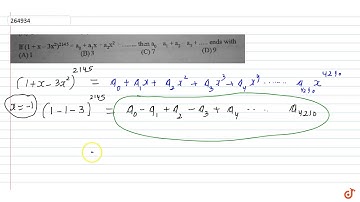 264934
If (1 + x – 3x²)²¹⁴⁵ = a₀ + a₁x + a₂x² ......... then a₀ – a₁ + a₂ – a₃ + ..... ends with
(A) 1 (B) 3 (C) 7 (D) 9
(1+x-3x²)²¹⁴⁵ = A₀ + A₁x + A₂x² + A₃x³ + A₄x⁴ ........ A₄₂₉₀ x⁴²⁹⁰
x=-1 (1-1-3)²¹⁴⁵ = A₀ - A₁ + A₂ - A₃ + A₄ ...... A₄₂₉₀